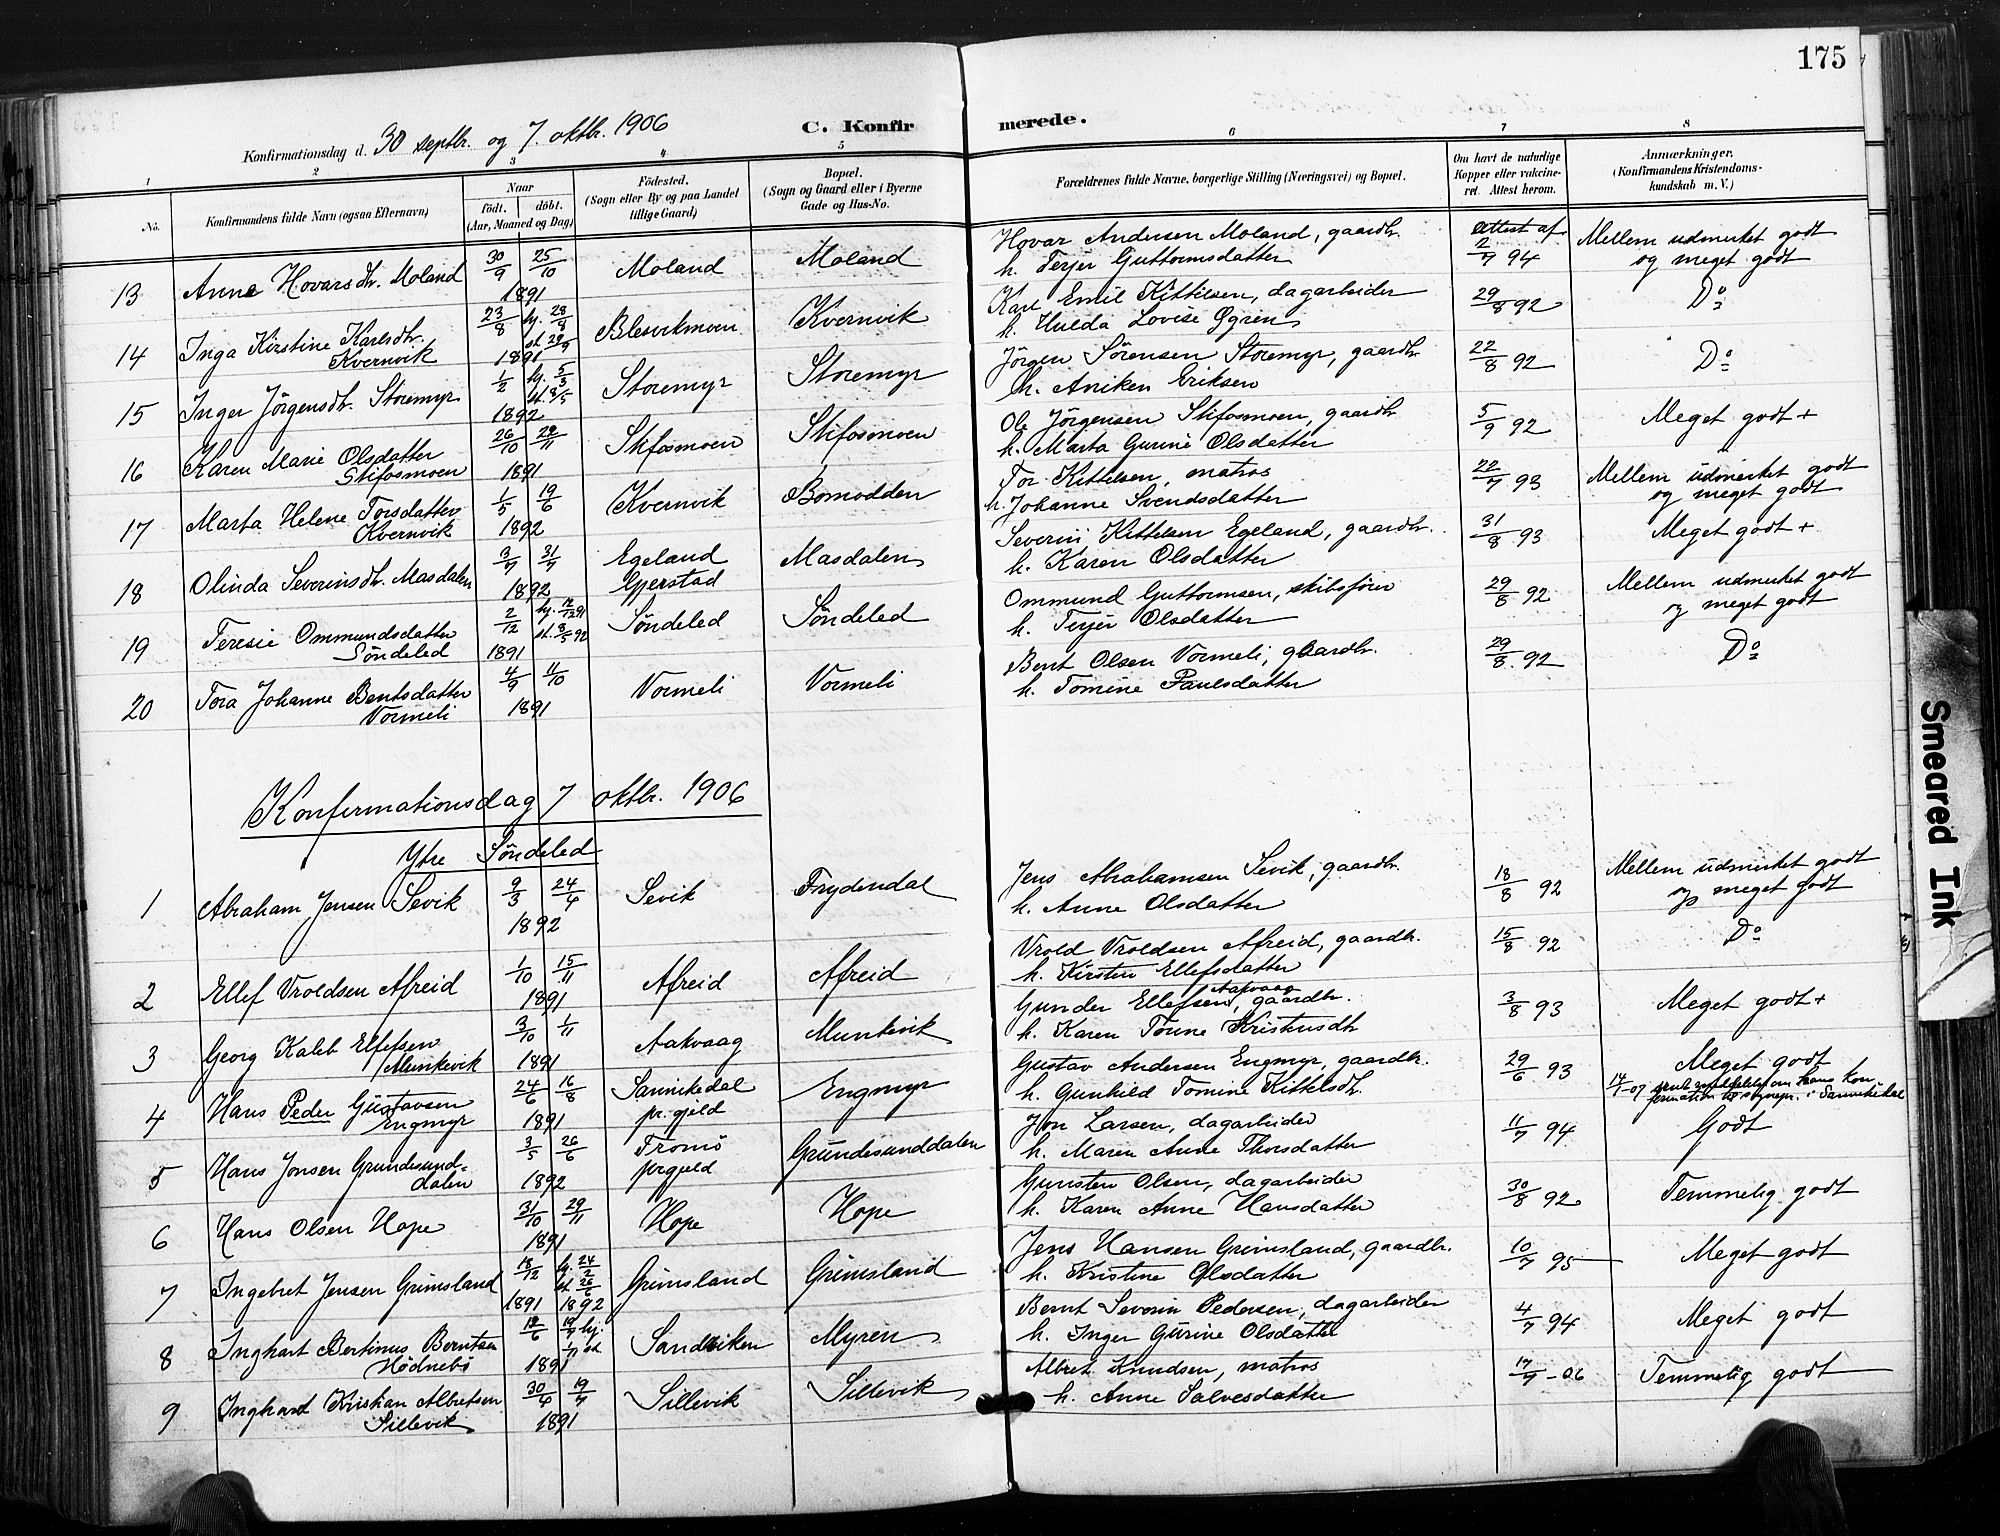 175
Konfirmationsdag d. 30 septbr. og 7. oktbr. 1906
C. Konfirmerede.
1 2 3 4 5 6 7 8
No.
Konfirmandens fulde Navn (ogsaa Efternavn)
Naar
födt. döbt.
(Aar, Maaned og Dag)
Födested.
(Sogn eller By og paa Landet
tillige Gaard)
Bopæl.
(Sogn og Gaard eller i Byerne
Gade og Hus-No.
Forældrenes fulde Navne, borgerlige Stilling (Næringsvei) og Bopæl.
Om havt de naturlige
Kopper eller vakcine-
ret. Attest herom.
Anmærkninger.
(Konfirmandens Kristendoms-
kundskab m. V.)
13 Anne Hovarsdtr. Moland 30/9 25/10 1891 Moland Moland
Hovar Andersen Moland, gaardbr.
h. Terjer Guttormsdatter
Attest af 2/7 94
Mellem udmerket godt
og meget godt
14 Inga Kirstine Karlsdtr.
Kvernvik
23/8 hj. 28/8 st. 29/9 1891 Blesvikmoen Kvernvik
Karl Emil Kittilsen, dagarbeider
h. Hulda Lovise Øgren
29/8 92 Do
15 Inger Jörgensdtr. Storemyr 1/2 hj. 5/3 st. 8/5 1892 Storemyr Storemyr
Jörgen Sörensen Storemyr, gaardbr.
h. Aniken Eriksen
22/8 92 Do
16 Karen Marie Olsdatter
Stifosmoen
26/10 29/11 1891 Stifosmoen Stifosmoen
Ole Jörgensen Stifosmoen, gaardbr.
h. Marta Gurine Olsdatter
5/9 92 Meget godt +
17 Marta Helene Torsdatter
Kvernvik
1/5 19/6 1892 Kvernvik Bomodden
Tor Kittilsen, matros
h. Johanne Svendsdatter
22/7 93
Mellem udmerket godt
og meget godt
18 Olinda Severinsdtr. Masdalen 3/7 31/7 1892 Egeland
Gjerstad
Masdalen
Severin Kittelsen Egeland, gaardbr.
h. Karen Olsdatter
31/8 93 Meget godt +
19 Teresie Ommundsdatter
Söndeled
2/12 hj. 17/12 91 st. 8/5 92 1891 Söndeled Söndeled
Ommund Guttormsen, skibsförer
h. Terjer Olsdatter
29/8 92
Mellem udmerket godt
og meget godt
20 Tora Johanne Bentsdatter
Vormeli
4/9 11/10 1891 Vormeli Vormeli
Bent Olsen Vormeli, gaardbr.
h. Tomine Paulsdatter
29/8 92 Do
Konfirmationsdag 7 oktbr. 1906
Ytre Söndeled
1 Abraham Jensen Sevik 9/3 24/4 1892 Sevik Frydendal
Jens Abrahamsen Sevik, gaardbr.
h. Anne Olsdatter
18/8 92
Mellem udmerket godt
og meget godt
2 Ellef Vroldsen Afreid 1/10 15/11 1891 Afreid Afreid
Vrold Vroldsen Afreid, gaardbr.
h. Kirsten Ellefsdatter
15/8 92 Do
3 Georg Kaleb Ellefsen
Munkevik
3/10 1/11 1891 Aakvaag Munkevik
Gunder Ellefsen Aakvaag, gaardbr.
h. Karen Tomine Kristensdtr
3/8 93 Meget godt +
4 Hans Peder Gustavsen
Engmyr
24/6 16/8 1891 Sannikedal
pr. gjeld
Engmyr
Gustav Andersen Engmyr, gaardbr.
h. Gunhild Tomine Kittelsdtr.
29/6 93 Meget godt
14/1-07 om hans Kon
firmation til sognepr. i Sannikedal
5 Hans Jonsen Grundesund-
dalen
3/5 26/6 1892 Tromö
prgjeld
Grundesunddalen
Jon Larsen, dagarbeider
h. Maren Anne Thorsdatter
11/7 94 Godt
6 Hans Olsen Hope 31/10 29/11 1891 Hope Hope
Gunsten Olsen, dagarbeider
h. Karen Anne Hansdatter
30/8 92 Temmelig godt
7 Ingebret Jensen Grimsland 18/12 hj. 24/2 st. 26/6 1891 1892 Grimsland Grimsland
Jens Hansen Grimsland, gaardbr.
h. Kristine Olsdatter
10/7 95 Meget godt
8 Inghart Bertinus Berntsen
Hödnebö
12/6 19/7 hj. st 1891 Sandviken Myren
Bernt Severin Pedersen, dagarbeider
h. Inger Gurine Olsdatter
4/7 94 Meget godt
9 Inghard Kristian Albretsen
Sillevik
30/4 19/7 1891 Sillevik Sillevik
Albret Knudsen, matros
h. Anne Salvesdatter
17/7-06 Temmelig godt
Smeared Ink